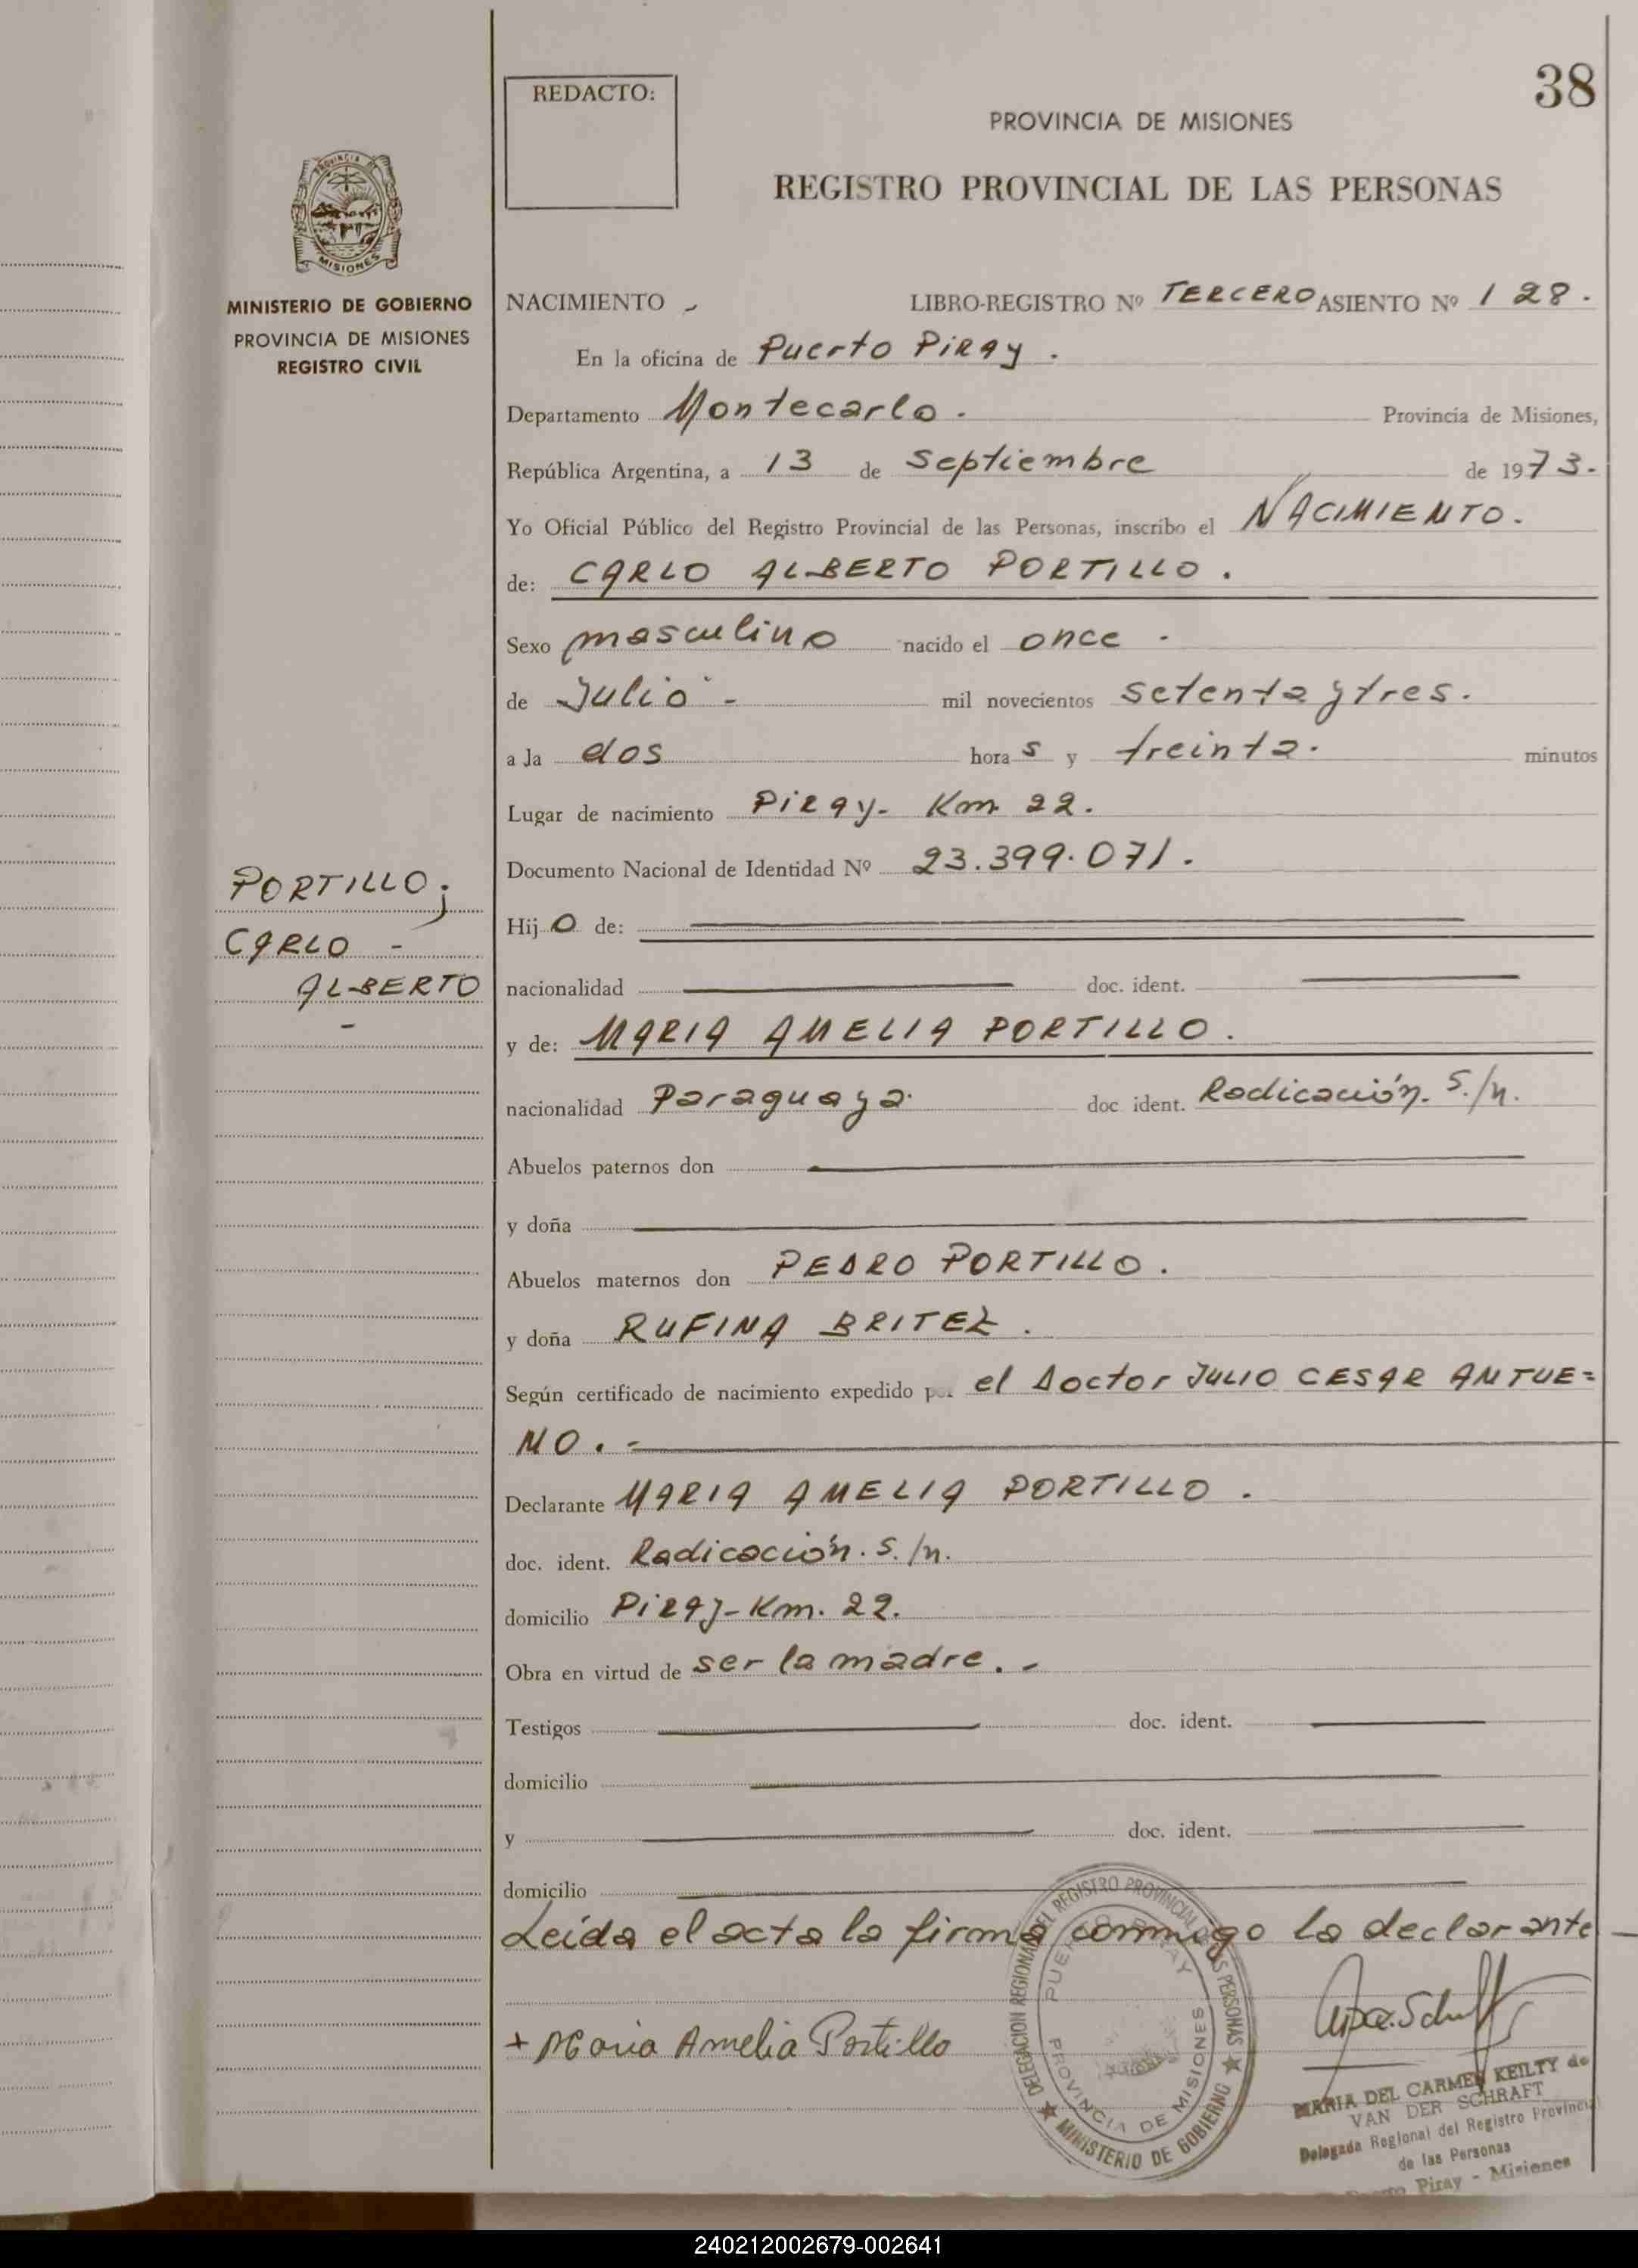 38
REDACTO:
PROVINCIA DE MISIONES
REGISTRO PROVINCIAL DE LAS PERSONAS
PROVINCIA DE
MISIONES
MINISTERIO DE GOBIERNO
PROVINCIA DE MISIONES
REGISTRO CIVIL
NACIMIENTO - LIBRO-REGISTRO Nº TERCERO ASIENTO Nº 128.
En la oficina de Puerto Piray.
Departamento Montecarlo. Provincia de Misiones,
República Argentina, a 13 de Septiembre de 1973.-
Yo Oficial Público del Registro Provincial de las Personas, inscribo el NACIMIENTO.
de: CARLO ALBERTO PORTILLO.
Sexo masculino nacido el once.
de Julio - mil novecientos setenta y tres.
a la dos horas y treinta. minutos
Lugar de nacimiento Piray- Km 22.
Documento Nacional de Identidad Nº 23.399.071.
PORTILLO;
CARLO -
ALBERTO
-
Hijo de:
nacionalidad doc. ident.
y de: MARIA AMELIA PORTILLO.
nacionalidad Paraguaya. doc ident. Radicación. S./n.
Abuelos paternos don
y doña
Abuelos maternos don PEDRO PORTILLO.
y doña RUFINA BRITEZ.
Según certificado de nacimiento expedido por el Doctor JULIO CESAR ANTUE=
NO.-
Declarante MARIA AMELIA PORTILLO.
doc. ident. Radicación. S./n.
domicilio Piray-Km. 22.
Obra en virtud de ser la madre.-
Testigos doc. ident.
domicilio
y doc. ident.
domicilio
Leída el acta la firma conmigo la declarante
+ Maria Amelia Portillo
DELEGACION REGIONAL DEL REGISTRO PROVINCIAL DE LAS PERSONAS
PUERTO PIRAY
PROVINCIA DE MISIONES
MINISTERIO DE GOBIERNO
MARIA DEL CARMEN KEILTY de
VAN DER SCHRAFT
Delegada Regional del Registro Provincial
de las Personas
Puerto Piray - Misiones
240212002679-002641